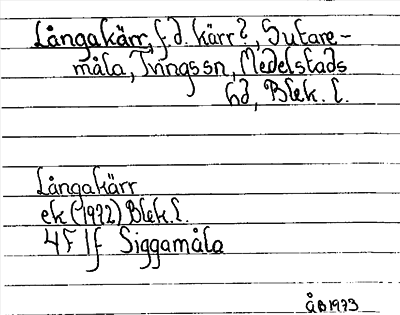 Långakärr, f.d. kärr?, Sutare-
måla, Tvingssn, Medelstads
hd, Blek. l.
Långakärr
ek (1972) Blek l.
4F 1f Siggamåla
ÅB 1973